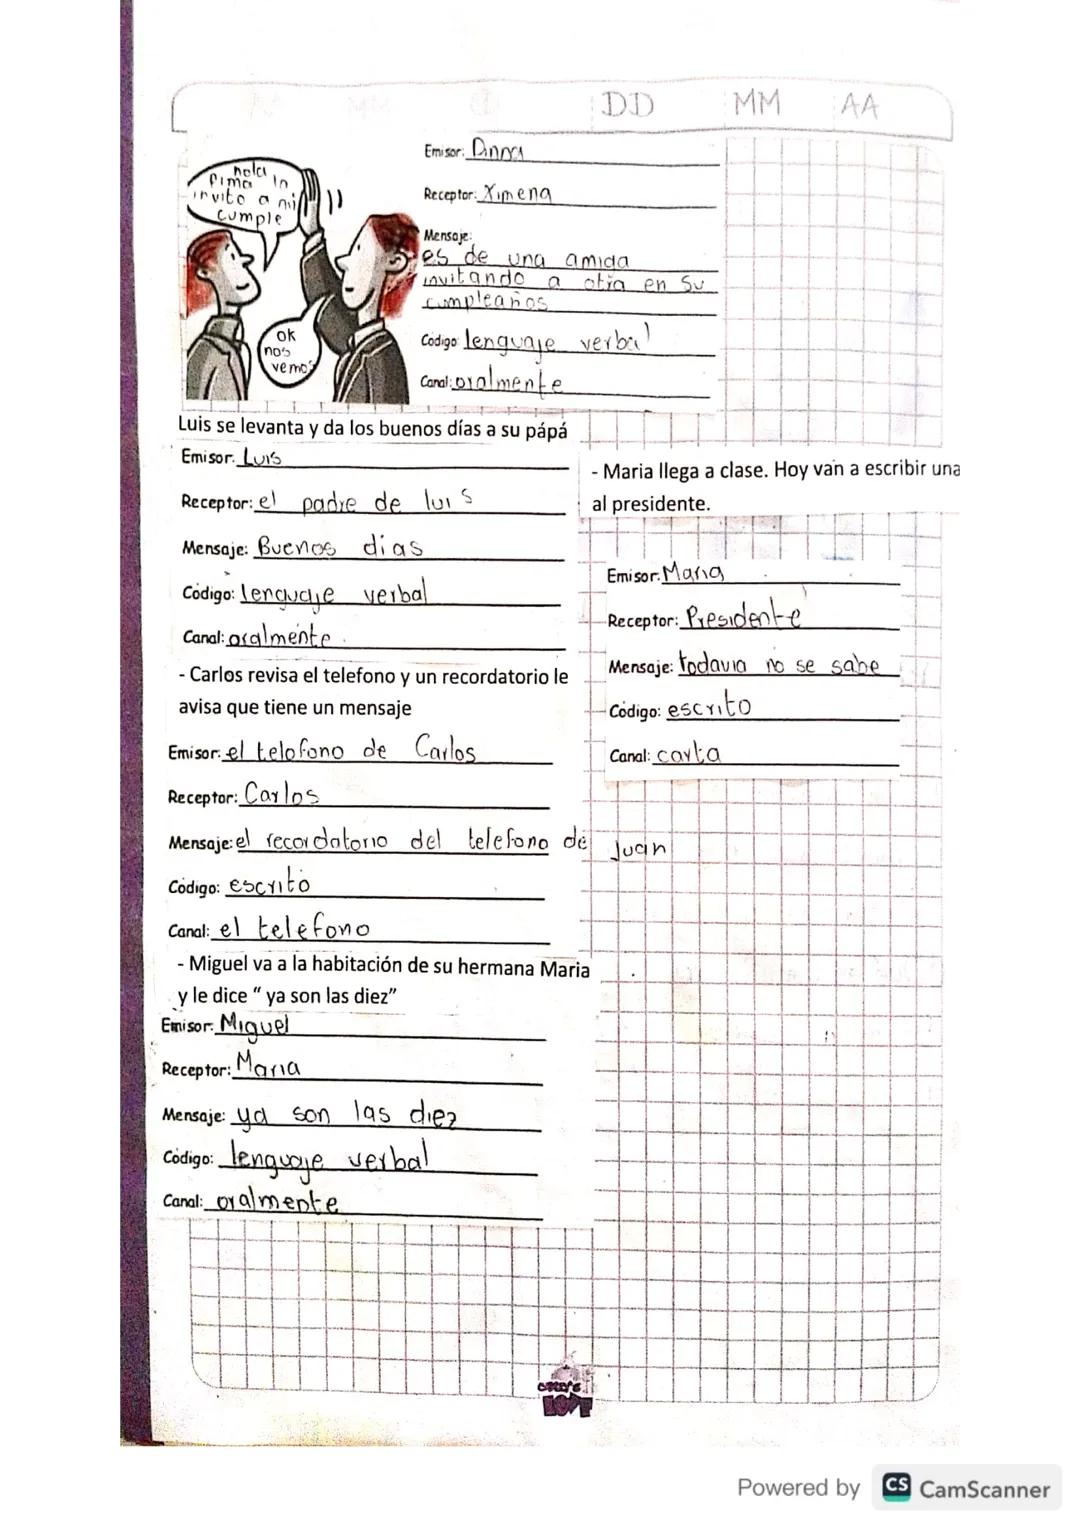 DD MM AA
hola
Pima In
invito a mi
cumple
ok
nos
vemos
Emisor:
Receptor: Ximena
Mensaje:
es de una amiga
invitando a otra en su
cumpleaños
Código: lenguaje verbal
Canal: oralmente
Luis se levanta y da los buenos días a su pápá
Emisor: Luis
Receptor: el padre de luis
Mensaje: Buenos dias
Código: lenguaje verbal
Canal: oralmente.
- Carlos revisa el telefono y un recordatorio le
avisa que tiene un mensaje
Emisor: el telofono de Carlos
Receptor: Carlos
Mensaje: el recordatorio del telefono de Juan
Código: escrito
Canal: el telefono
- Miguel va a la habitación de su hermana Maria
y le dice “ ya son las diez”
Emisor: Miguel
Receptor: Maria
Mensaje: ya son las diez
Código: lenguaje verbal
Canal: oralmente
- Maria llega a clase. Hoy van a escribir una
al presidente.
Emisor: Maria
Receptor: Presidente
Mensaje: todavia no se sabe
Código: escrito
Canal: carta
LOVE
Powered by CS CamScanner